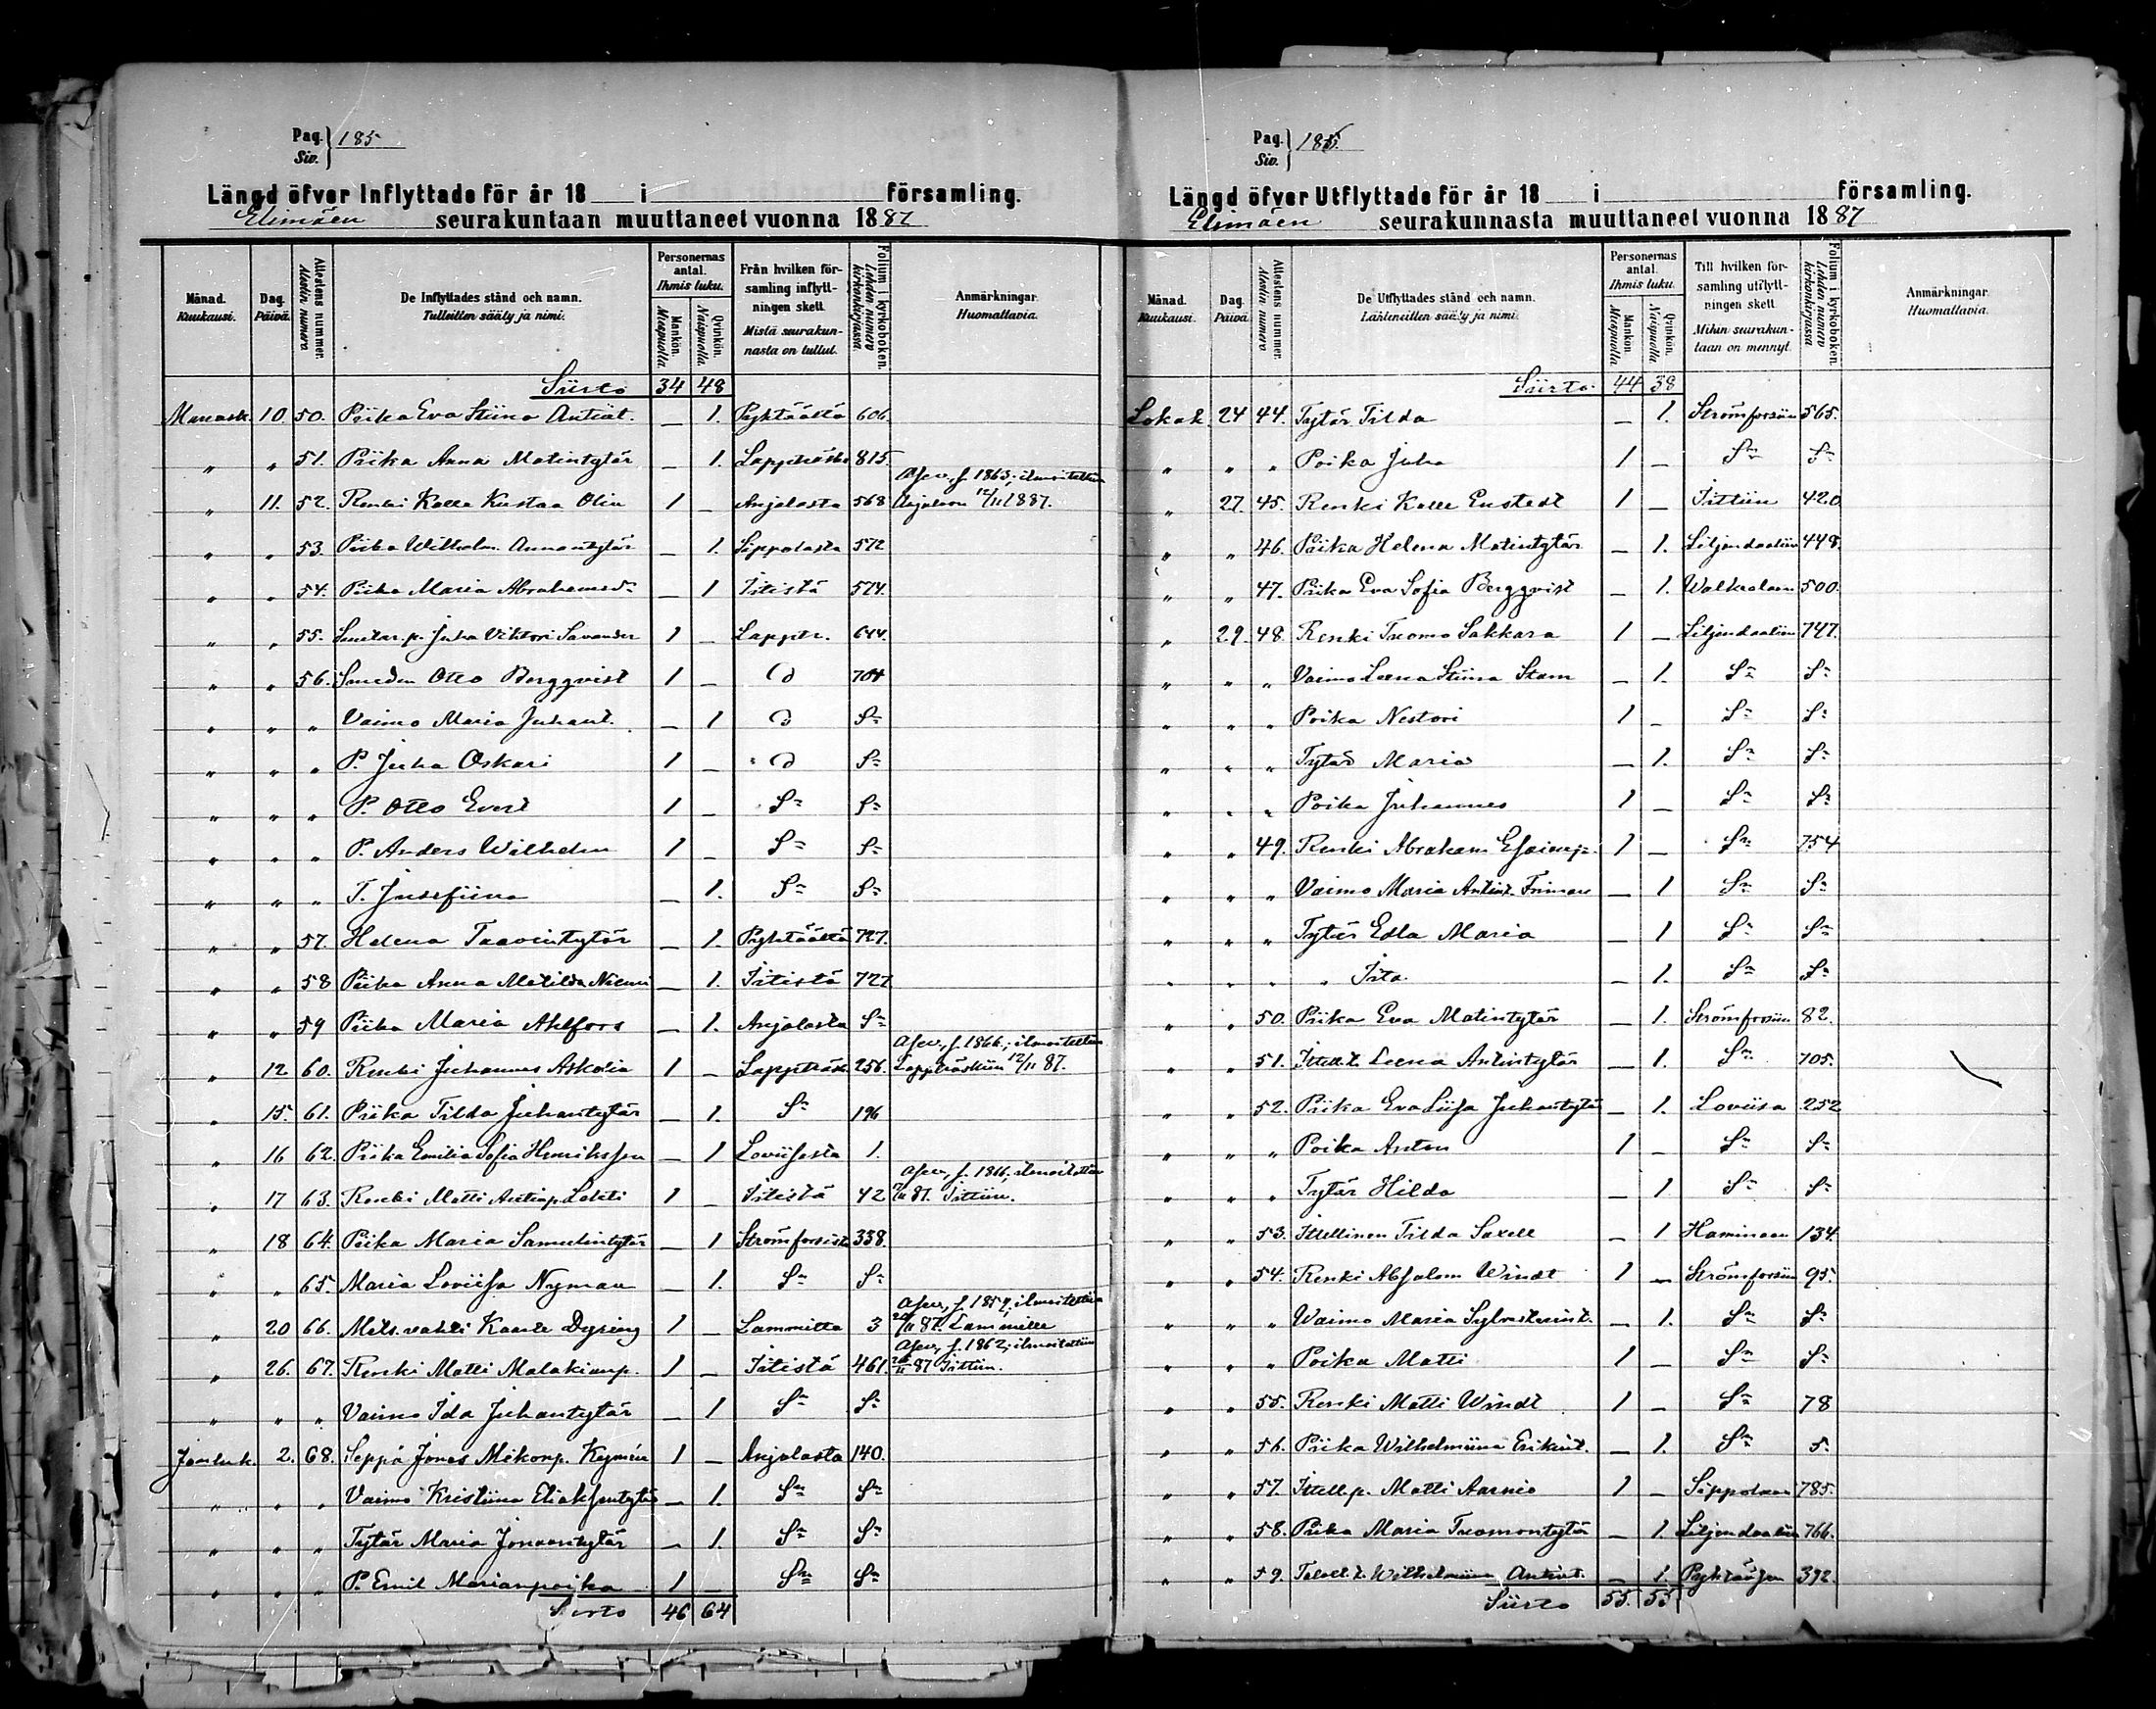 Pag. 185
Siv.
Längd öfver Inflyttade för år 18 i församling.
Elimäen seurakuntaan muuttaneet vuonna 1887
Månad. Kuukausi. Dag. Päivä. Attestens nummer. Alestin numero De Inflyttades stånd och namn. Tulleitten sääty ja nimi. Personernas antal. Ihmis luku. Mankön. Miespuolia. Qvinkön. Naispuolia. Från hvilken församling inflyttningen skett Mistä seurakunnasta on tullut. Folium i kyrkoboken. Lehden numero kirkonkirjassa. Anmärkningar. Huomattavia.
Siirto 34 48
Marrask. 10. 50. Piika Eva Stiina Antint. — 1. Pyhtäältä 606.
" " 51. Piika Anna Matintytär — 1. Lappträsk 815.
" 11. 52. Renki Kalle Kustaa Olin 1 — Anjalasta 568 Asev. s. 1865; ilmoitettiin Anjalaan 12/11 1887.
" " 53. Piika Wilhelm. Annantytär — 1. Sippolasta 572
" " 54. Piika Maria Abrahamsd:r — 1 Iitistä 574.
" " 55. Juha Viktori Savander 1 — Lapptr. 644.
" " 56. Smeden Otto Bergqvist 1 — d 704
" " " Vaimo Maria Juhant. — 1 d S:n
" " " P. Juha Oskari 1 — d S:n
" " " P. Otto Evert 1 — S:n S:n
" " " P. Anders Wilhelm 1 — S:n S:n
" " " T. Josefiina — 1. S:n S:n
" " 57. Helena Taavintytär — 1. Pyhtäältä 727.
" " 58 Piika Anna Matilda Niemi — 1. Iitistä 727
" " 59 Piika Maria Ahlfors — 1. Anjalasta S:n
" 12 60. Renki Juhannes Askolin 1 — Lappträsk 256. Asev. s. 1866; ilmoitettiin Lappträskiin 12/11 87.
" 15. 61. Piika Tilda Juhantytär — 1. S:n 196
" 16 62. Piika Emilia Sofia Henriksson — 1 Loviisasta 1.
" 17 63. Renki Matti Antinp. Lehti 1 — Iitistä 42 Asev. s. 1866, ilmoitettiin 87. Iittiin.
" 18 64. Piika Maria Samulintytär — 1 Strömforsista 338.
" " 65. Maria Loviisa Nyman — 1. S:n S:n
" 20 66. Mets.vahti Kaarle Dyring 1 — Lammilta 3 Asev. s. 1859; ilmoitettiin 20/11 87. Lammille
" 26. 67. Renki Matti Malakianp. 1 — Iitistä 461. Asev. s. 1862; ilmoitettiin 26/11 87 Iittiin.
" " " Vaimo Ida Juhantytär — 1 S:n S:n
Jouluk. 2. 68. Seppä Jonas Mikonp. Kymén 1 — Anjalasta 140.
" " " Vaimo Kristiina Eliaksentytär — 1. S:n S:n
" " " Tytär Maria Jonaantytär — 1. S:n S:n
" " " P. Emil Marianpoika 1 — S:n S:n
Siirto 46 64
Pag. 185.
Siv.
Längd öfver Utflyttade för år 18 i församling.
Elimäen seurakunnasta muuttaneet vuonna 1887
Månad. Kuukausi. Dag. Päivä. Attestens nummer. Alestin numero De Utflyttades stånd och namn. Lähteneitten sääty ja nimi. Personernas antal. Ihmis luku. Mankön. Miespuolia. Qvinkön. Naispuolia. Till hvilken församling utflyttningen skett Mihin seurakuntaan on mennyt. Folium i kyrkoboken. Lehden numero kirkonkirjassa Anmärkningar. Huomattavia.
Siirto. 44 38
Lokak 24 44. Tytär Tilda — 1. Strömforsiin 565.
" " " Poika Juha 1 — S:n S:n
" 27. 45. Renki Kalle Enstedt 1 — Iittiin 420
" " 46. Piika Helena Matintytär — 1. Liljendaaliin 448.
" " 47. Piika Eva Sofia Bergqvist — 1. Walkealaan 500.
" 29. 48. Renki Tuomo Sakkara 1 — Liljendaaliin 747.
" " " Vaimo Leena Stiina Stam — 1. S:n S:n
" " " Poika Nestori 1 — S:n S:n
" " " Tytär Maria — 1. S:n S:n
" " " Poika Juhannes 1 — S:n S:n
" " 49. Renki Abraham Esaianp. 1 — S:n 754
" " " Vaimo Maria Antint. Friman — 1 S:n S:n
" " " Tytär Edla Maria — 1 S:n S:n
" " " " Iita — 1. S:n S:n
" " 50. Piika Eva Matintytär — 1. Strömforsiin 82.
" " 51. Itell.t. Leena Antintytär — 1. S:n 705.
" " 52. Piika Eva Liisa Juhantytär — 1. Loviisa 252
" " " Poika Anton 1 — S:n S:n
" " " Tytär Hilda — 1 S:n S:n
" " 53. Itellinen Tilda Saxell — 1 Haminaan 134.
" " 54. Renki Absalom Windt 1 — Strömforsiin 95.
" " " Waimo Maria Sylvesterint. — 1. S:n S:n
" " " Poika Matti 1 — S:n S:n
" " 55. Renki Matti Windt 1 — S:n 78
" " 56. Piika Wilhelmiina Erikint. — 1. S:n S.
" " 57. Itell.p. Matti Aarnio 1 — Sippolaan 785.
" " 58. Piika Maria Tuomontytär — 1. Liljendaaliin 766.
" " 59. Taloll.t. Wilhelmiina Antint. — 1. Pyhtääsen 392.
Siirto 55. 55